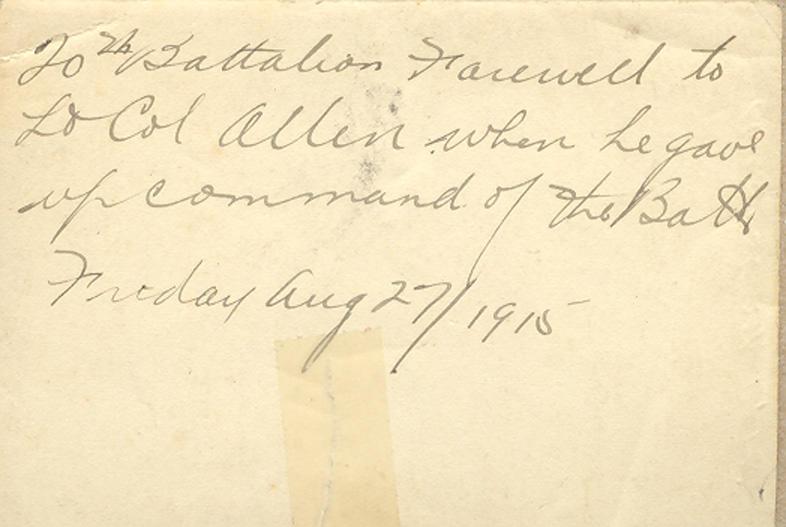 20th Battalion Farewell to
Lt Col Allen when he gave
up command of the Batt
Friday Aug 27/1915